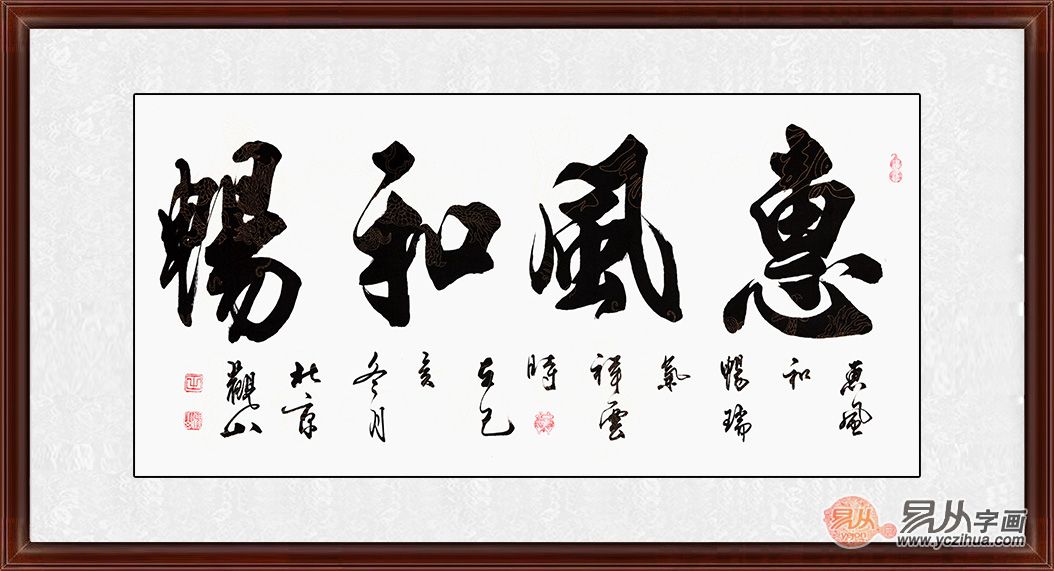 惠風和暢
惠風
和
暢瑞
氣
祥雲
時
在己
亥
冬月
北京
觀山
易从
yejon
易从字画
www.yczihua.com